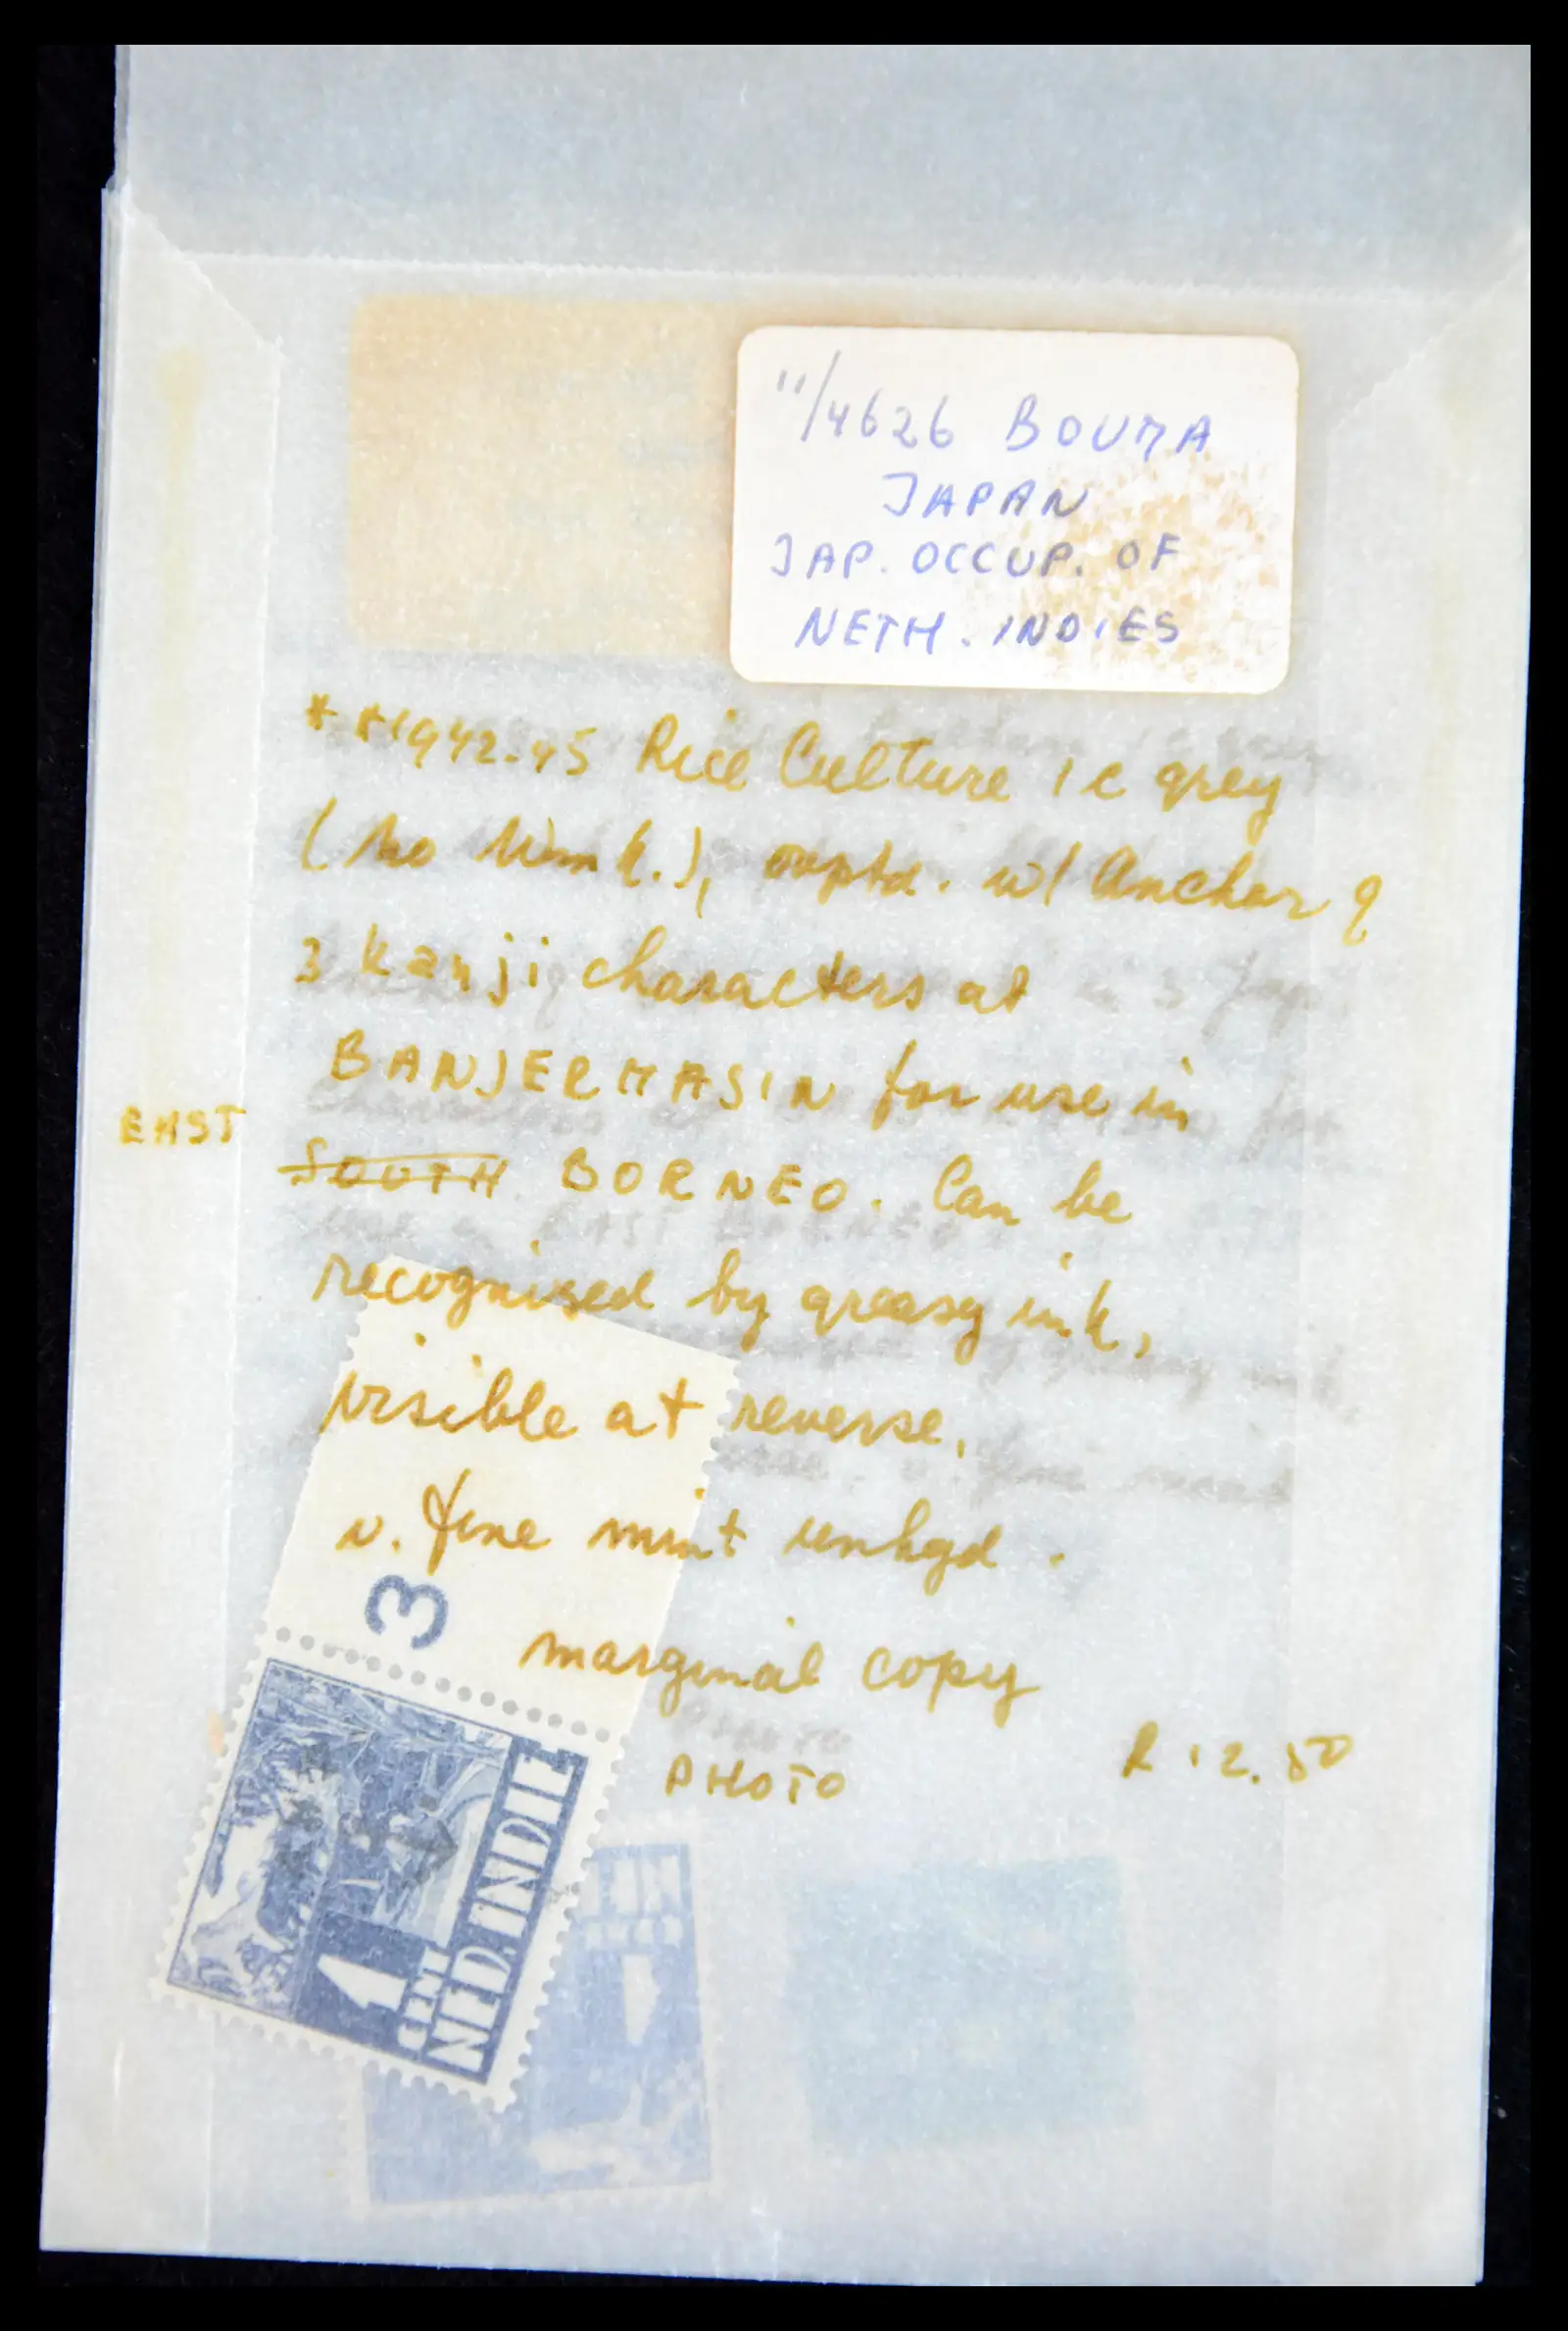 11/4626 BOUMA
JAPAN
JAP. OCCUP. OF
NETH. INDIES
**1942-45 Rice Culture 1 c grey
(no wmk.), ovptd. w/ Anchor &
3 kanji characters at
BANJERMASIN for use in
EAST
SOUTH BORNEO. Can be
recognised by greasy ink,
visible at reverse.
v. fine mint unhgd.
marginal copy
PHOTO R 12.50
3
1
CENT
NED. INDIE